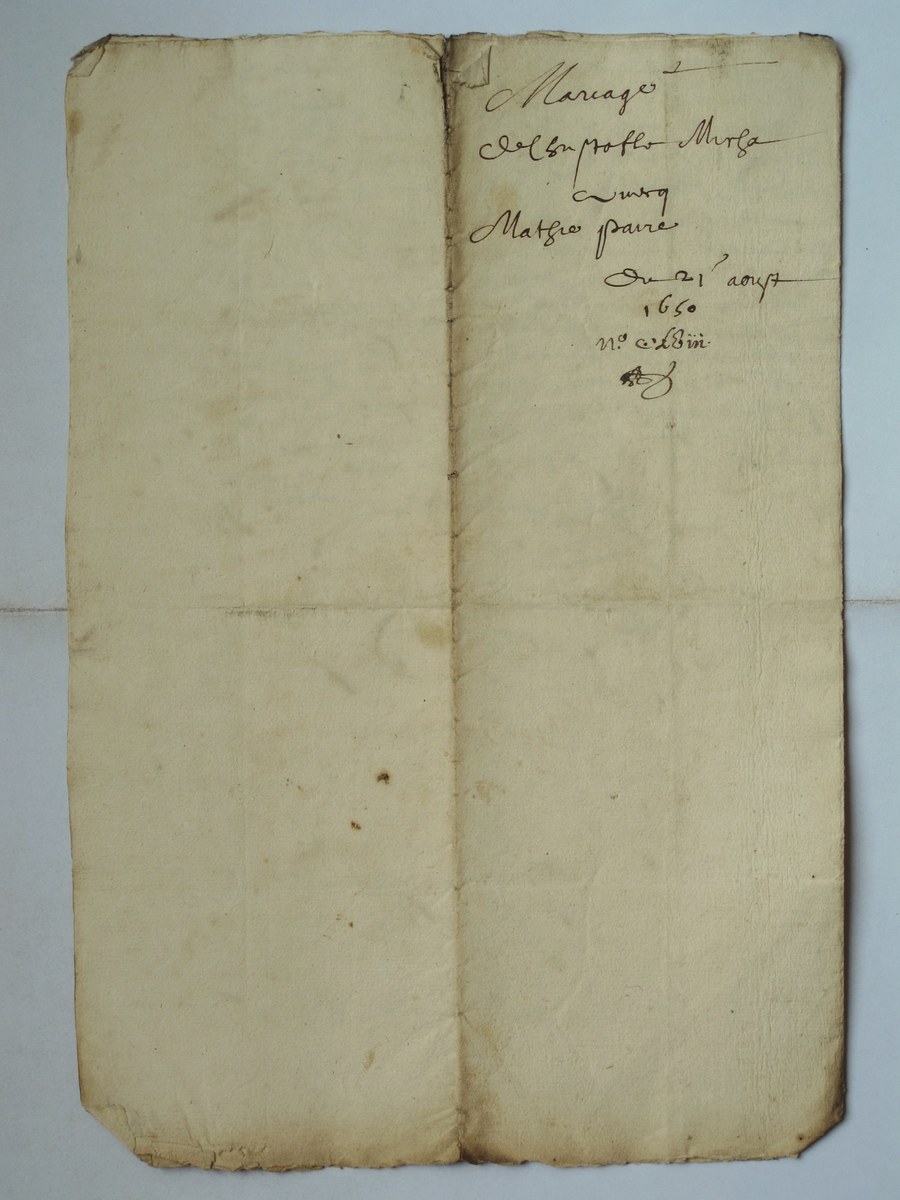 Mariage
de Christofle Micha
avecq
Mathie paire
du 21 aoust
1650
n.º clviii